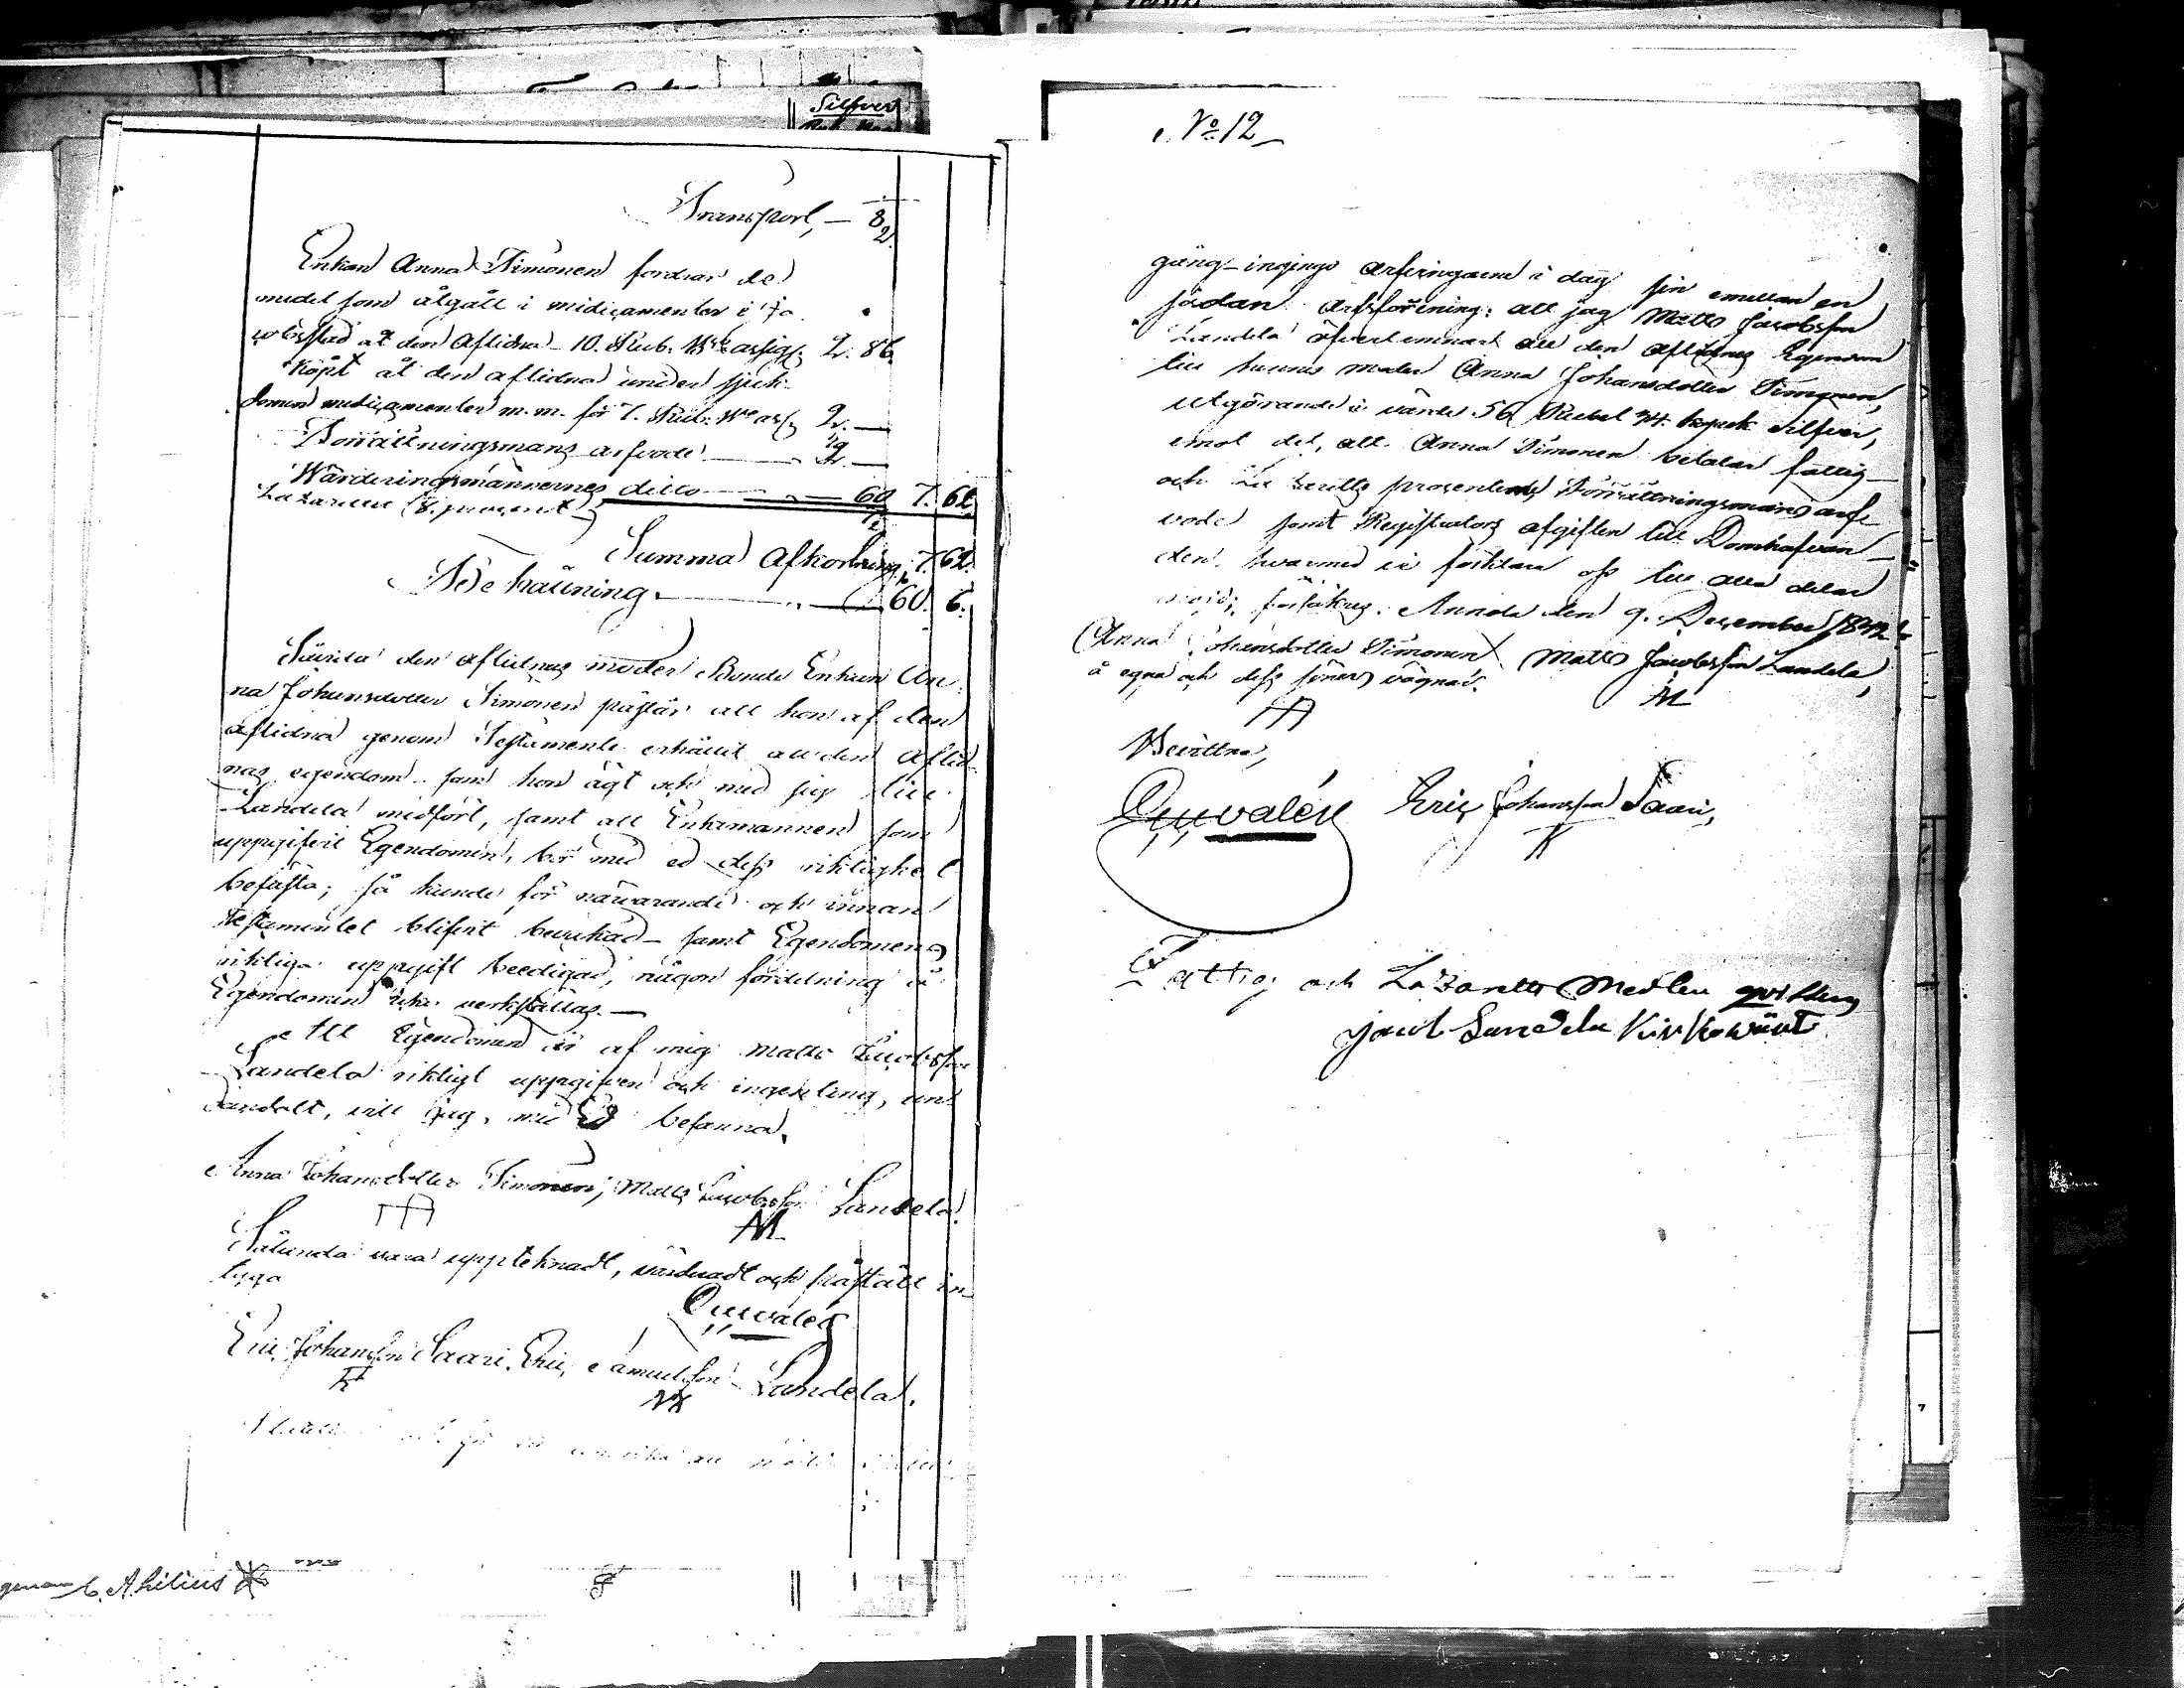 Silfver
Transport, — 8
2
Enkan Anna Timonen fordrar de
medel som åtgått i midicamenter i Ja
cobsstad åt den Aflidna 10. Rub. B:co assig: 2. 86.
Köpt åt den aflidna under sjuk-
domen medicamenter m. m. för 7. Rub. ass: 2. —
Förrättningsmans arfvode — 2. —
Wärderingsmännernes ditto — 60 7. 62.
Lazarette (8. procent)
Summa Afkortning 7. 62.
Behållning. — 60. 6.
Såvida den aflidnas moder Bonde Enkan An-
na Johansdotter Timonen påstår att hon af den
aflidna genom Testamente erhållit all den aflid-
nas egendom som hon ägt och med sig till
Landela medfört, samt att Enkemannen som
uppgifvit Egendomen, bör med ed dess riktighet
befästa; så kunde för närvarande och innan
Testamentet blifvit bevakad — samt Egendomens
riktiga uppgift beedigad, någon fördelning å
Egendomen icke verkställas. —
Att Egendomen är af mig Matts Jacobsson
Landela riktigt uppgifven och ingenting, un-
dandolt, vill jag, med Ed besanna.
Anna Johansdotter Timonen, Matts Jacobsson Landela.
M
Sålunda vara upptecknadt, värderadt och påstått in-
tyga
Quvalén
Eric Johansson Saari. Eric Samuelsson Landela.
genom C. A. Lilius
No 12
gång ingingo arfvingarne i dag sin emellan en
sådan arfsförening: att jag Matts Jacobsson
Landela öfverlemnar all den aflidnas Egendom
till hennes moder Anna Johansdotter Timonen,
utgörande i värde 56 Rubel 74. kopek silfver,
emot det, att Anna Timonen betalar fattig-
och Lazaretts procenten, Förrättningsmans arf-
vode samt Registrators afgiften till Domhafvan-
den, hvarmed vi förklara oss till alla delar
försäkras. Annola den 9. December 1842.
Anna Johansdotter Timonen Matts Jacobsson Landela,
å egna och dess söners vägnar.
M
Bevittna,
Quvalén Eric Johansson Saari,
Fattig och Lazaretts Medlen qvitteras
Jacob Landela Kirkowärt